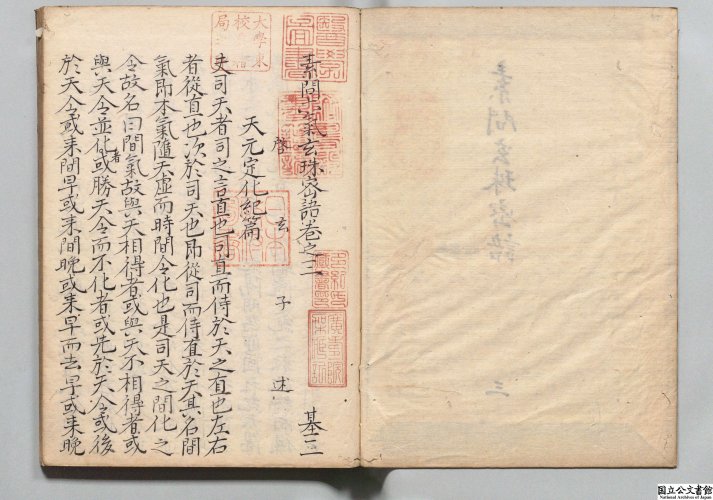 素問六氣玄珠密語卷之二 基三
啓玄子述
天元定化紀篇
夫司天者司之言直也司直而侍於天之直也左右
者從直也次於司天也即從司而侍直於天其名間
氣即本氣隨天虛而時間令化也是司天之間化之
令故名曰間氣故與天相得者或與天不相得者或
與天令並化者或勝天令而不化者或先於天令或後
於天令或來間早或來間晚或來早而去早或來晚
国立公文書館
National Archives of Japan